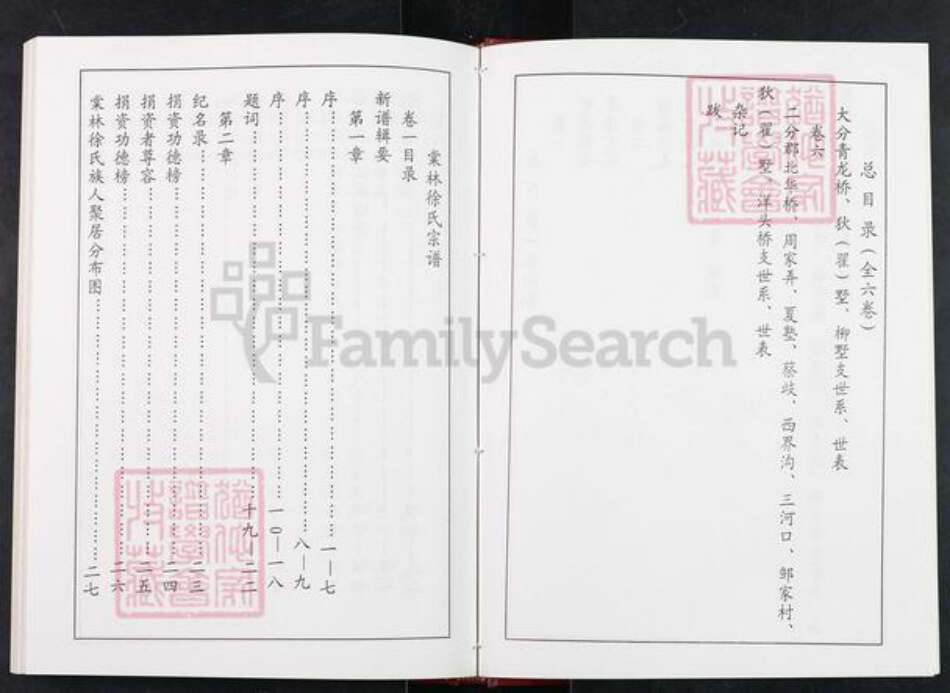 总目录（全六卷）
大分青龙桥、狄（翟）墅、柳墅支世系、世表
卷六
二分郡北华桥、周家弄、夏墅、蔡歧、西界沟、三河口、邹家村、
狄（翟）墅、洋头桥支世系、世表
杂记
跋
棠林徐氏宗谱
卷一目录
新谱辑要
第一章
序……一—七
序……八—九
序……一〇—一八
题词……十九—二二
第二章
纪名录……二三
捐资功德榜……二四
捐资者尊容……二五
捐资功德榜……二六
棠林徐氏族人聚居分布图……二七
FamilySearch